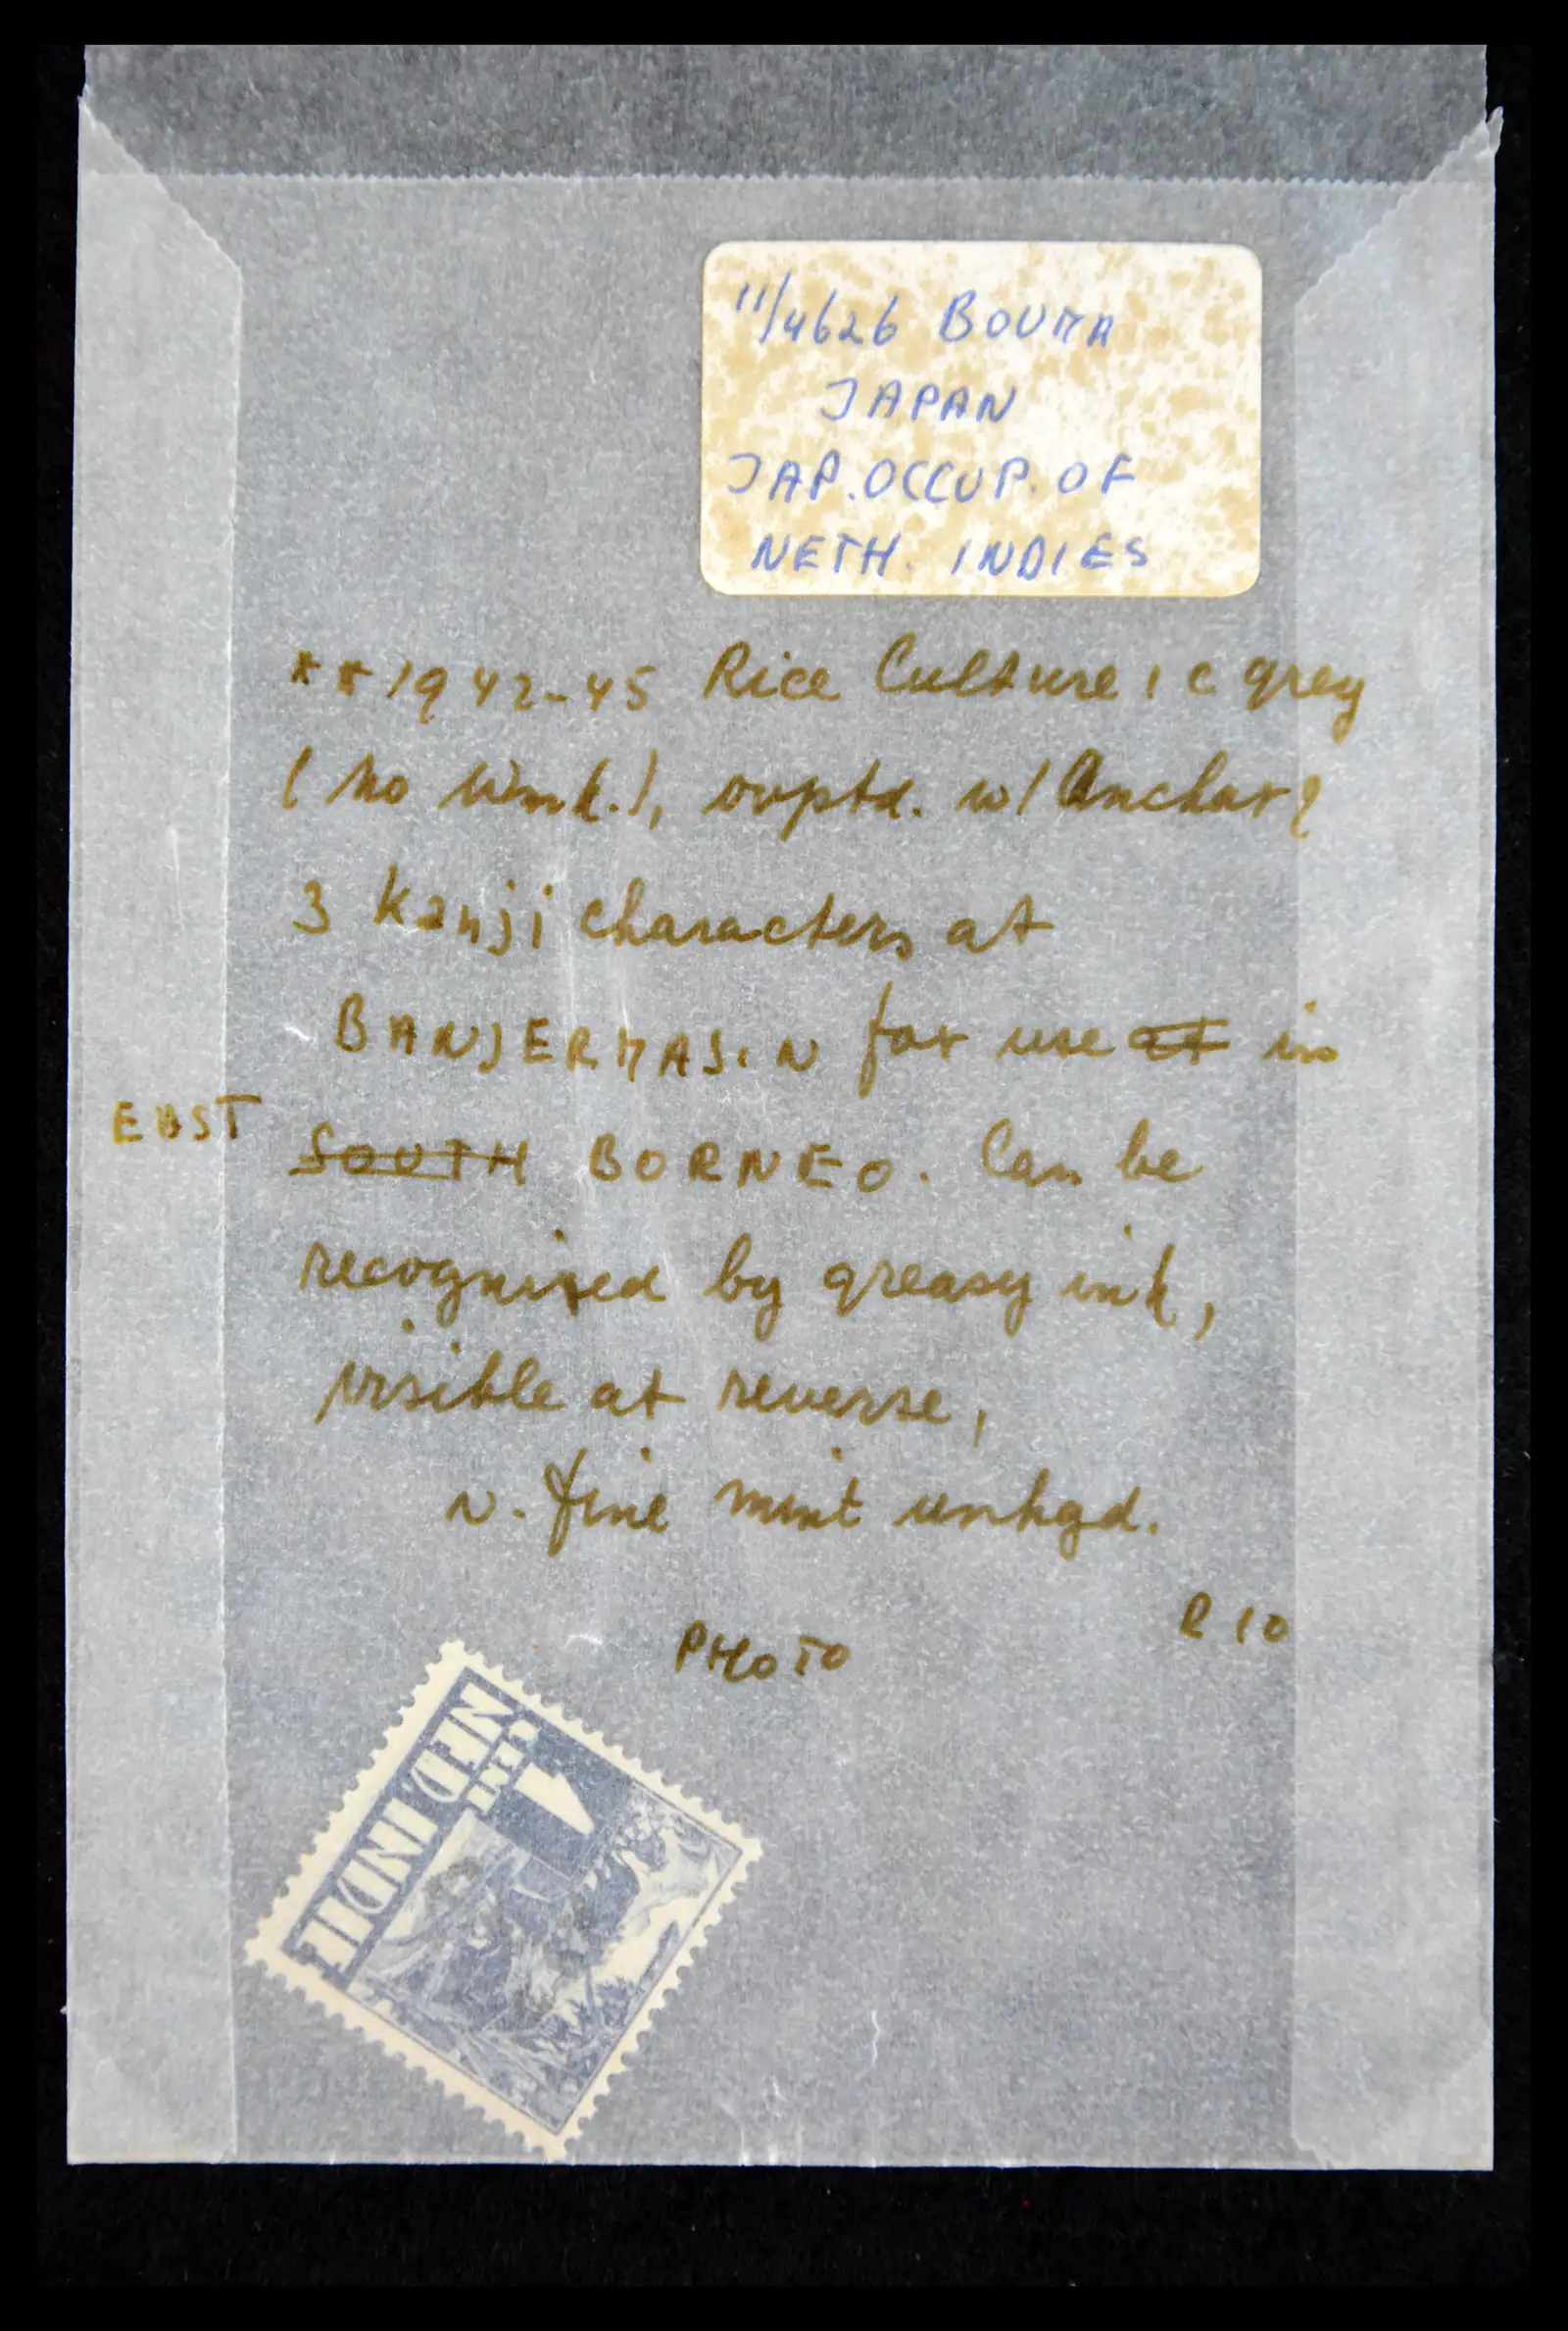 11/4626 BOUMA
JAPAN
JAP. OCCUP. OF
NETH. INDIES
** 1942-45 Rice Culture 1 c grey
(no wmk.), ovptd. w/ Anchor &
3 Kanji characters at
BANJERMASIN for use at in
EAST SOUTH BORNEO. Can be
recognized by greasy ink,
visible at reverse,
v. fine mint unhgd.
R 10
PHOTO
1
CENT
NED. INDIE